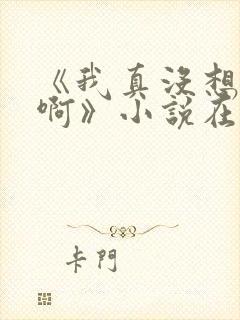 《我真沒想
啊》小說在
卡門